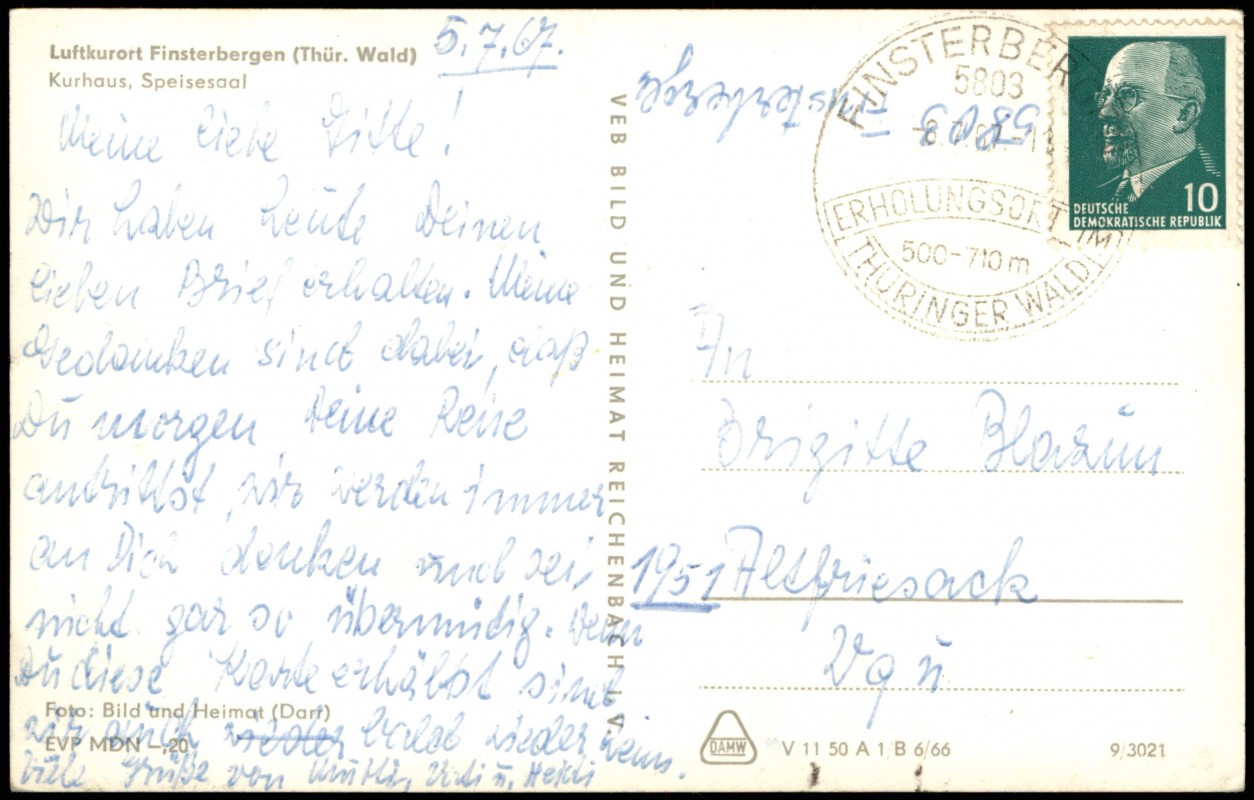 Luftkurort Finsterbergen (Thür. Wald)
Kurhaus, Speisesaal
5.7.67.
Meine liebe Gitte!
Wir haben heute Deinen
lieben Brief erhalten. Meine
Gedanken sind dabei, daß
Du morgen Deine Reise
antrittst, wir werden immer
an Dich denken und sei,
nicht gar so übermütig. Wenn
Du diese Karte erhälst sind
wir auch wieder bald wieder
Viele Grüße von Mutti, Vati u. Heidi
Foto: Bild und Heimat (Darr)
EVP MDN –,20
VEB BILD UND HEIMAT REICHENBACH I. V.
5803 Finsterbergen
FINSTERBERGEN
5803
ERHOLUNGSORT IM
500-710 m
THÜRINGER WALD
10
DEUTSCHE
DEMOKRATISCHE REPUBLIK
An
Brigitte
1951 Altfriesack
DAMW
V 11 50 A 1/B 6/66
9/3021